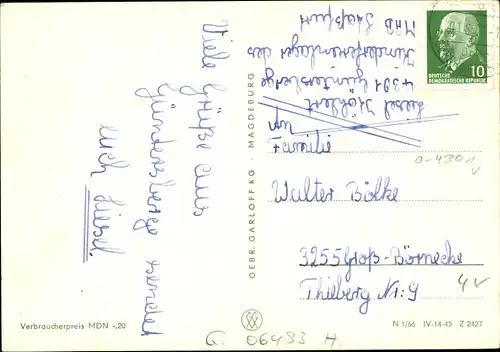 Viele Grüße aus
Güntersberge sendet
euch Liesel.
GEBR. GARLOFF KG · MAGDEBURG
Liesel Köhlert
4391 Güntersberge
Kinderferienlager des
MRB Staßfurt
10
DEUTSCHE
DEMOKRATISCHE REPUBLIK
Familie
Walter Bölke
3255 Groß-Börnecke
Thieberg Nr. 9
0-4301
4V
Verbraucherpreis MDN -,20
G. 06433 H.
N 1/66 IV-14-45 Z 2427